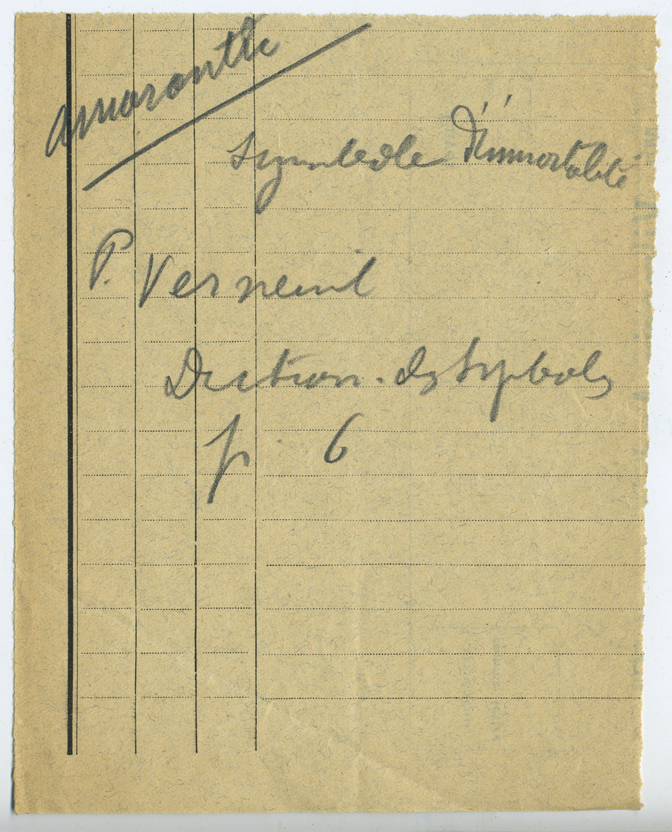 amaranthe
Symbole d'immortalité
P. Verneuil
Diction. des symboles
p. 6